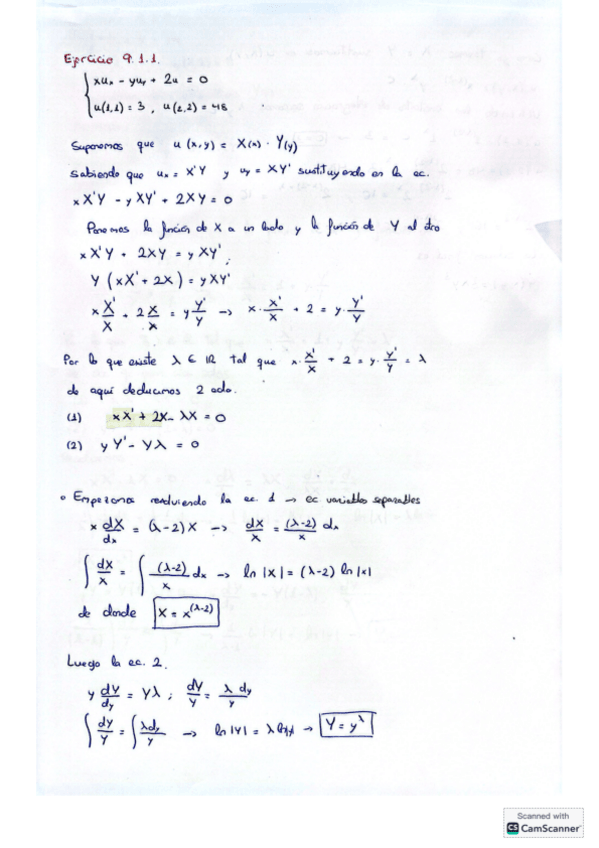 Ejercicio 9.1.1.
xuₓ - yu_y + 2u = 0
u(1,1) = 3 , u(2,2) = 48
Suponemos que u(x,y) = X(x) · Y(y)
Sabiendo que uₓ = X'Y y u_y = XY' sustituyendo en la ec.
xX'Y - yXY' + 2XY = 0
Ponemos la función de X a un lado y la función de Y al otro
xX'Y + 2XY = yXY' ;
Y (xX' + 2X) = yXY'
x X'/X + 2 X/X = y Y'/Y → x · X'/X + 2 = y · Y'/Y
Por lo que existe λ ∈ ℝ tal que x · X'/X + 2 = y · Y'/Y = λ
de aquí deducimos 2 edo.
(1) xX' + 2X - λX = 0
(2) yY' - Yλ = 0
• Empezamos resolviendo la ec. 1 → ec variables separables
x dX/dx = (λ-2)X → dX/X = (λ-2)/x dx
∫ dX/X = ∫ (λ-2)/x dx → ln |X| = (λ-2) ln |x|
de donde X = x^(λ-2)
Luego la ec. 2.
y dY/dy = Yλ ; dY/Y = λ dy/y
∫ dy/Y = ∫ λdy/y → ln |Y| = λ ln|y| → Y = y^λ
Scanned with
CS CamScanner